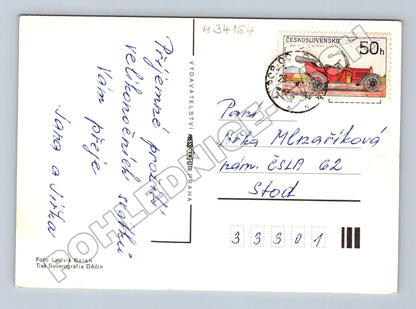 H 34164
ČESKOSLOVENSKO
50h
Příjemné prožití
velikonočních svátků
Vám přeje
Jana a Jirka
VYDAVATELSTVÍ
PRAHA
Paní
Jiřka Mlnaříková
nám. ČSLA 62
Stod
33301
Foto Ludvík Baran
Tisk Severografia Děčín
POHLEDNICE-SBCH